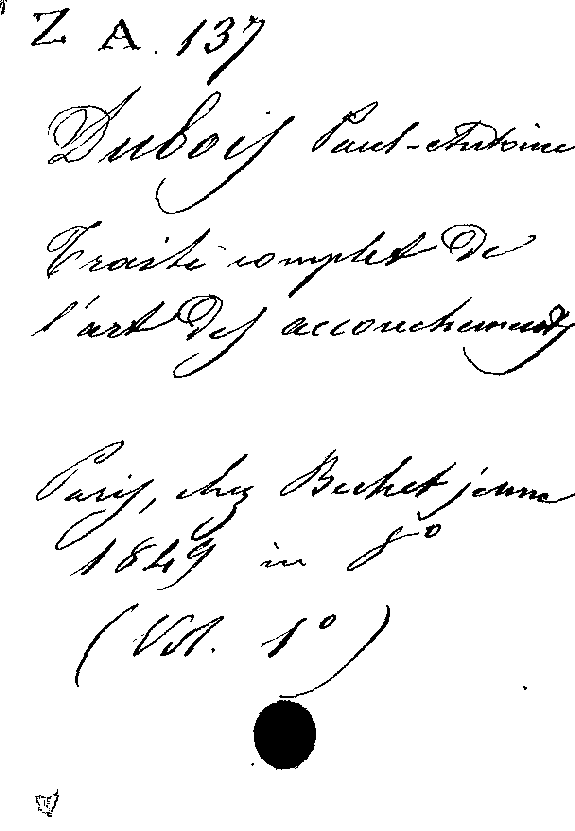 Z A. 137
Dubois Paul-Antoine
Traité complet de
l'art des accouchements
Paris, chez Bechet jeune
1849 in 8º
(Vol. 1º)